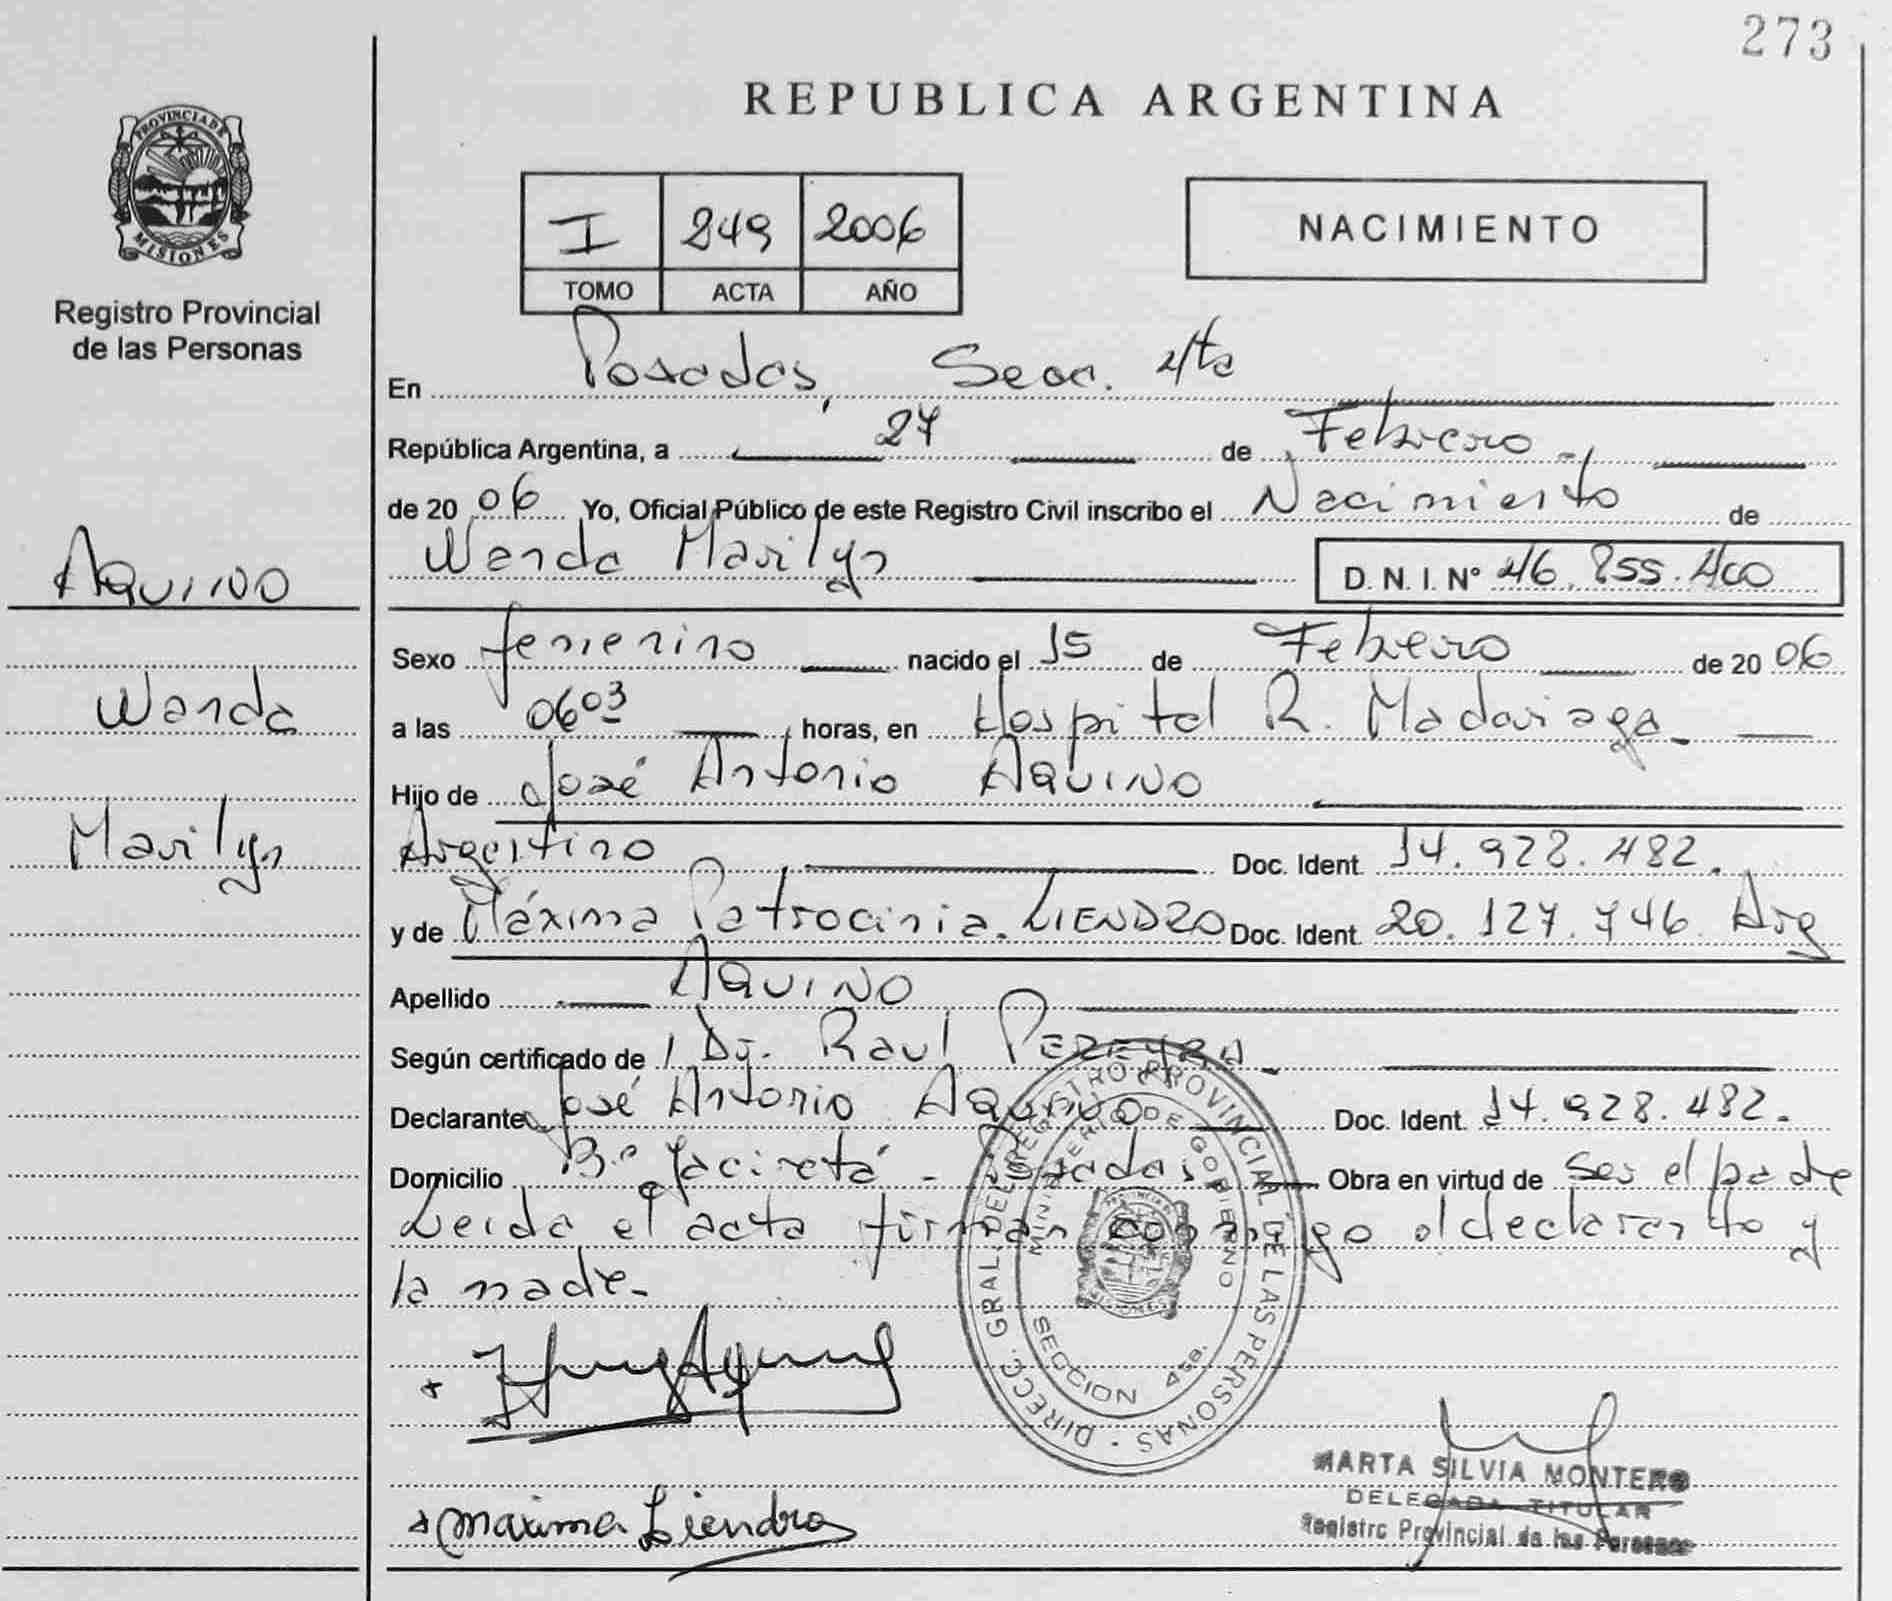 273
REPUBLICA ARGENTINA
PROVINCIA DE
MISIONES
Registro Provincial
de las Personas
I 249 2006
TOMO ACTA AÑO
NACIMIENTO
En Posadas, Secc. 4ta
República Argentina, a 27 de Febrero
de 2006 Yo, Oficial Público de este Registro Civil inscribo el Nacimiento de
Wanda Marilyn D. N. I. Nº 46.855.400
AQUINO
Wanda
Marilyn
Sexo femenino nacido el 15 de Febrero de 2006
a las 0603 horas, en Hospital R. Madariaga
Hijo de José Antonio AQUINO
Argentino Doc. Ident. 14.928.482.
y de Máxima Patrocinia LIENDRO Doc. Ident. 20.127.746 Arg
Apellido AQUINO
Según certificado de Dr. Raul PEREYRA
Declarante José Antonio AQUINO Doc. Ident. 14.928.482.
Domicilio B.º Yaciretá - Posadas Obra en virtud de ser el padre
Leida el acta firman conmigo el declarante y
la madre-
DIRECC. GRAL. DEL REGISTRO PROVINCIAL DE LAS PERSONAS
MINISTERIO DE GOBIERNO
SECCION 4ta.
Maxima Liendro
MARTA SILVIA MONTERO
DELEGADA TITULAR
Registro Provincial de las Personas